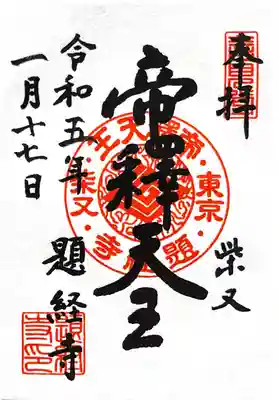 奉拝
柴又
帝釋天王
東京・柴又・題経寺
帝釋天王
題経寺
令和五年
一月十七日